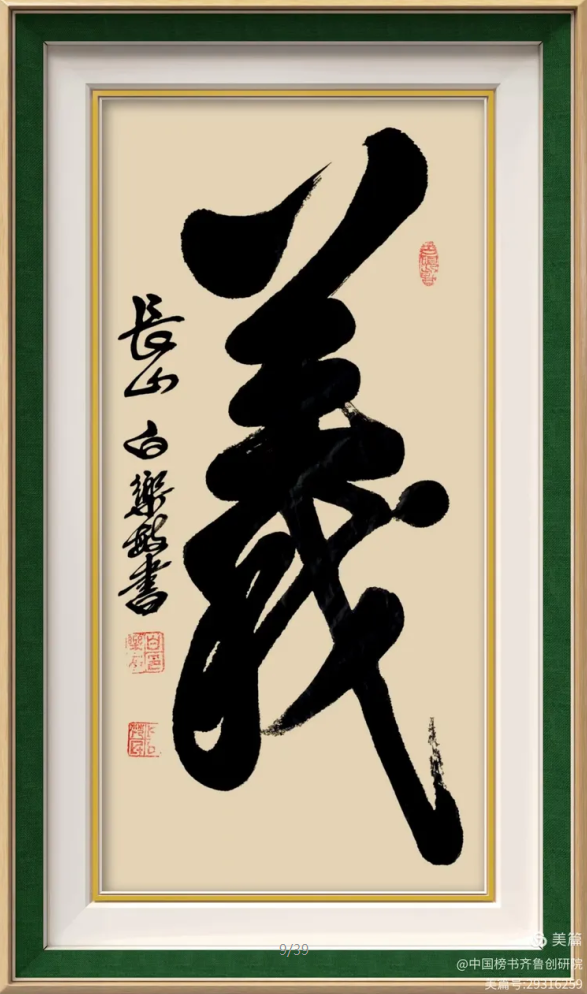 義
長山 白樂敏書
9/39
美篇
@中国榜书齐鲁创研院
美篇号:29316259